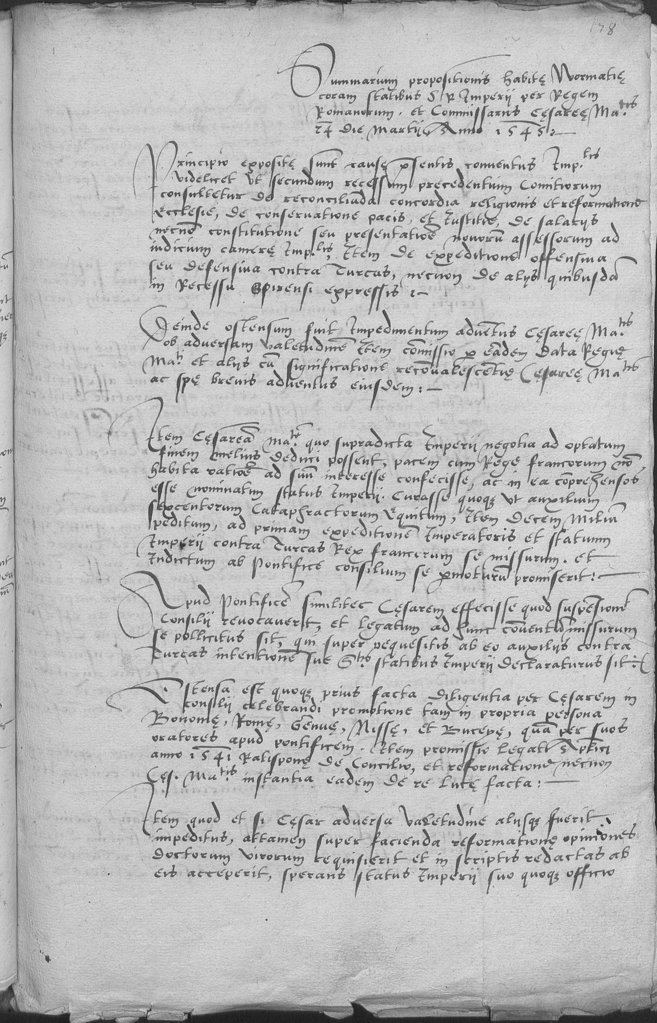 178
Summarium propositionis habitę Wormatię
coram statibus S. R. Imperii per Regem
Romanorum. et Commissarios Cęsareę Ma.tis
24 die Martij Anno 1545:
Principio expositę sunt causę p̄sentis conventus Imp.lis
videlicet ut secundum recessum precedentium Comitiorum
consultetur de reconcilianda concordia religionis et reformatione
Ecclesię, de conservatione pacis, et Iustitię, de salarijs
necnō constitutione seu presentatiōe novorū assessorum ad
iudicium camerę Imp.lis, Item de expeditione offensiva
seu defensiva contra Turcas, necnon de alijs quibusdā
in Recessu Spirensi expressis:
Deinde ostensum fuit Impedimentum adventus Cęsareę Ma.tis
ob adversam valetudinē Item cōmissio p eandem data Regię
Ma.ti et alijs cū significatione reconvalescentię Cęsareę Ma.tis
ac spę brevis adventus eiusdem:
Item Cęsareā Ma.tē quo supradicta Imperii negotia ad optatum
finem melius deduci possent, pacem cum Rege francorum nō
habita ratiōe ad suū interesse confecisse, ac in ea cōprehensos
esse nominatim status Imperii. Curasse quoqȝ ut auxilium
sexcentorum Cataphractorum Equitum, Item decem Miliū
peditum, ad primam expeditionem Imperatoris et statuum
Imperii contra Turcas Rex francorum se missurum. et
Indictum ab Pontifice consilium se p̄moturū promiserit:
Apud Pontificē similiter Cęsarem effecisse quod suspensionē
Consilii revocaverit, et legatum ad hunc cōventū missurum
se pollicitus sit, qui super requisitis ab eo auxiliis contra
Turcas intentionē suę S.tis statibus Imperii declaraturus sit:
Ostensa est quoqȝ prius facta diligentia per Cęsarem in
Consilii celebrandi promotione tam in propria persona
Bononię, Romę, Genuę, Nissę, et Bucepę, quā per suos
oratores apud pontificem. Item promissio legati
anno 1541 Ratisponę de Concilio, et reformatione necnon
Cęs. Ma.tis instantia eadem de re Lucę facta:
Item quod et si Cęsar adversa valetudīne alijsqȝ fuerit
impeditus, attamen super facienda reformatione opiniones
doctorum virorum requisierit et in scriptis redactas ab
eis acceperit, sperans status Imperii suo quoqȝ officio